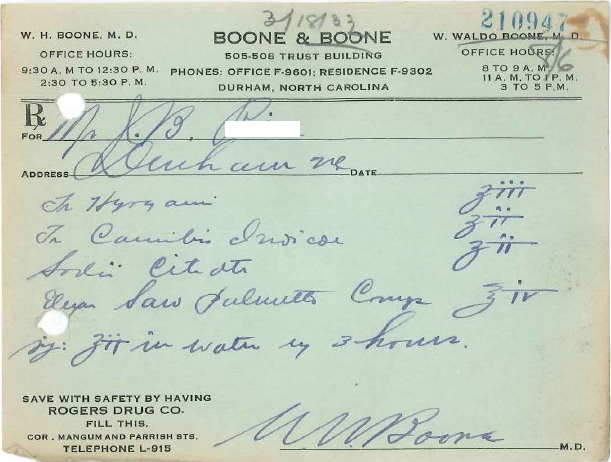 3/18/33
210947
W. H. BOONE, M. D.
OFFICE HOURS:
9:30 A. M TO 12:30 P. M.
2:30 TO 5:30 P. M.
BOONE & BOONE
505-506 TRUST BUILDING
PHONES: OFFICE F-9601; RESIDENCE F-9302
DURHAM, NORTH CAROLINA
W. WALDO BOONE, M. D.
OFFICE HOURS:
8 TO 9 A. M.
11 A. M. TO 1 P. M.
3 TO 5 P.M.
℞
FOR Mr J. B.
ADDRESS Durham NC DATE
Tr Hyoscyami ʒiii
Tr Cannabis Indicae ʒii
Sodii Citrate ʒii
Elixir Saw Palmetto Comp ʒiv
Sig: ʒii in water ey 3 hours.
SAVE WITH SAFETY BY HAVING
ROGERS DRUG CO.
FILL THIS.
COR. MANGUM AND PARRISH STS.
TELEPHONE L-915
W W Boone M.D.